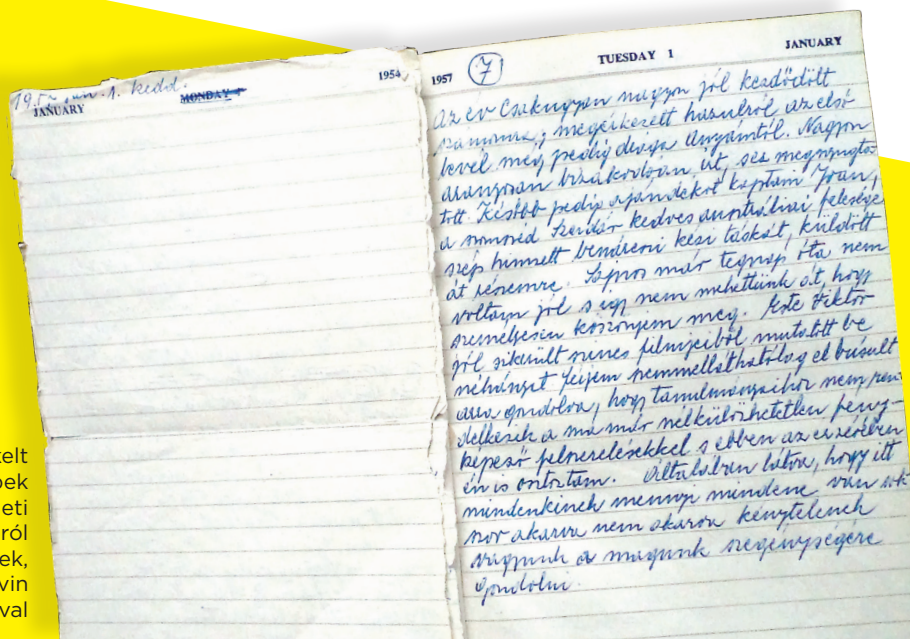 19.57 jan. 1. kedd.
JANUARY MONDAY 4 1954
1957 7 TUESDAY 1 JANUARY
Az év csakugyan nagyon jól kezdődött
számomra; megérkezett hazulról az első
levél még pedig drága Anyámtól. Nagyon
aranyosan búcsúzkodóan út, sez megnyugta-
tott. Később pedig ajándékot kaptam Joan,
a szomszéd Sándár kedves ausztráliai felesége
szép hímzett benáresi kézi táskát, küldött
át részemre. Sajnos már tegnap óta nem
voltam jól s így nem mehettünk át, hogy
személyesen köszönjem meg. Este Viktor
jól sikerült színes filmjeiből mutatott be
néhányat férjem szemmelláthatólag el búsult
arra gondolva, hogy tanulmányaihoz nem ren-
delkezik a ma már nélkülözhetetlen fény-
képező felszerelésekkel s ebben az
én is osztoztam. Általában látva, hogy itt
mindenkinek mennyi mindene van sok-
szor akarva nem akarva kénytelenek
vagyunk a magunk szegénységére
gondolni.
elt
ek
eti
ról
ek,
vin
val